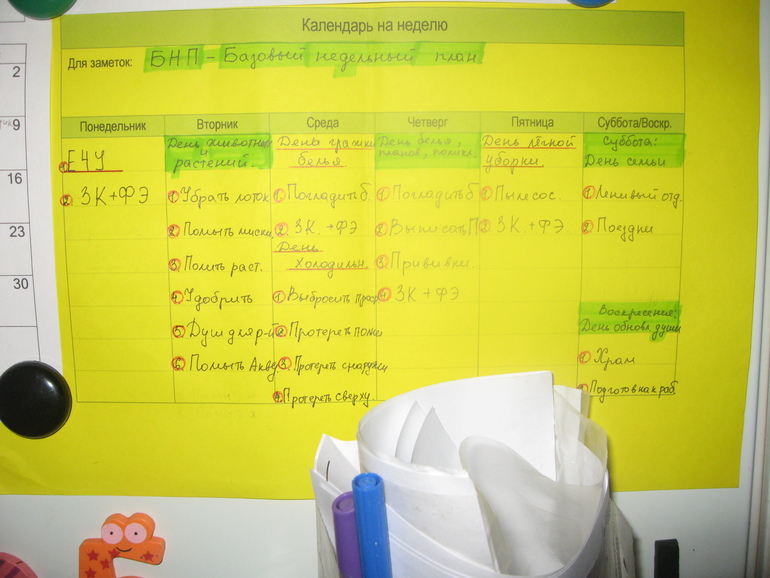 Календарь на неделю
Для заметок: БНП - Базовый недельный план
2
9
16
23
30
Понедельник
① ЕЧУ
② ЗК+ФЭ
Вторник
День животных
и
растений.
① Убрать лоток
② Помыть миски
③ Полить раст.
④ Удобрить
⑤ Душ для р-й
⑥ Помыть Акв.
Среда
День глажки
белья
① Погладить б.
② ЗК. +ФЭ
День
холодильн.
① Выбросить
② Протереть полки
③ Протереть снаружи
④ Протереть сверху.
Четверг
День белья,
планов,
① Погладить б
② Выписать П
③ Прививки.
④ ЗК+ФЭ
Пятница
День лёгкой
уборки.
① Пылесос.
② ЗК. +ФЭ
Суббота/Воскр.
Суббота:
День семьи
① Ленивый отд.
② Поездки
Воскресение:
День обновл души
① Храм
② Подготов на раб.